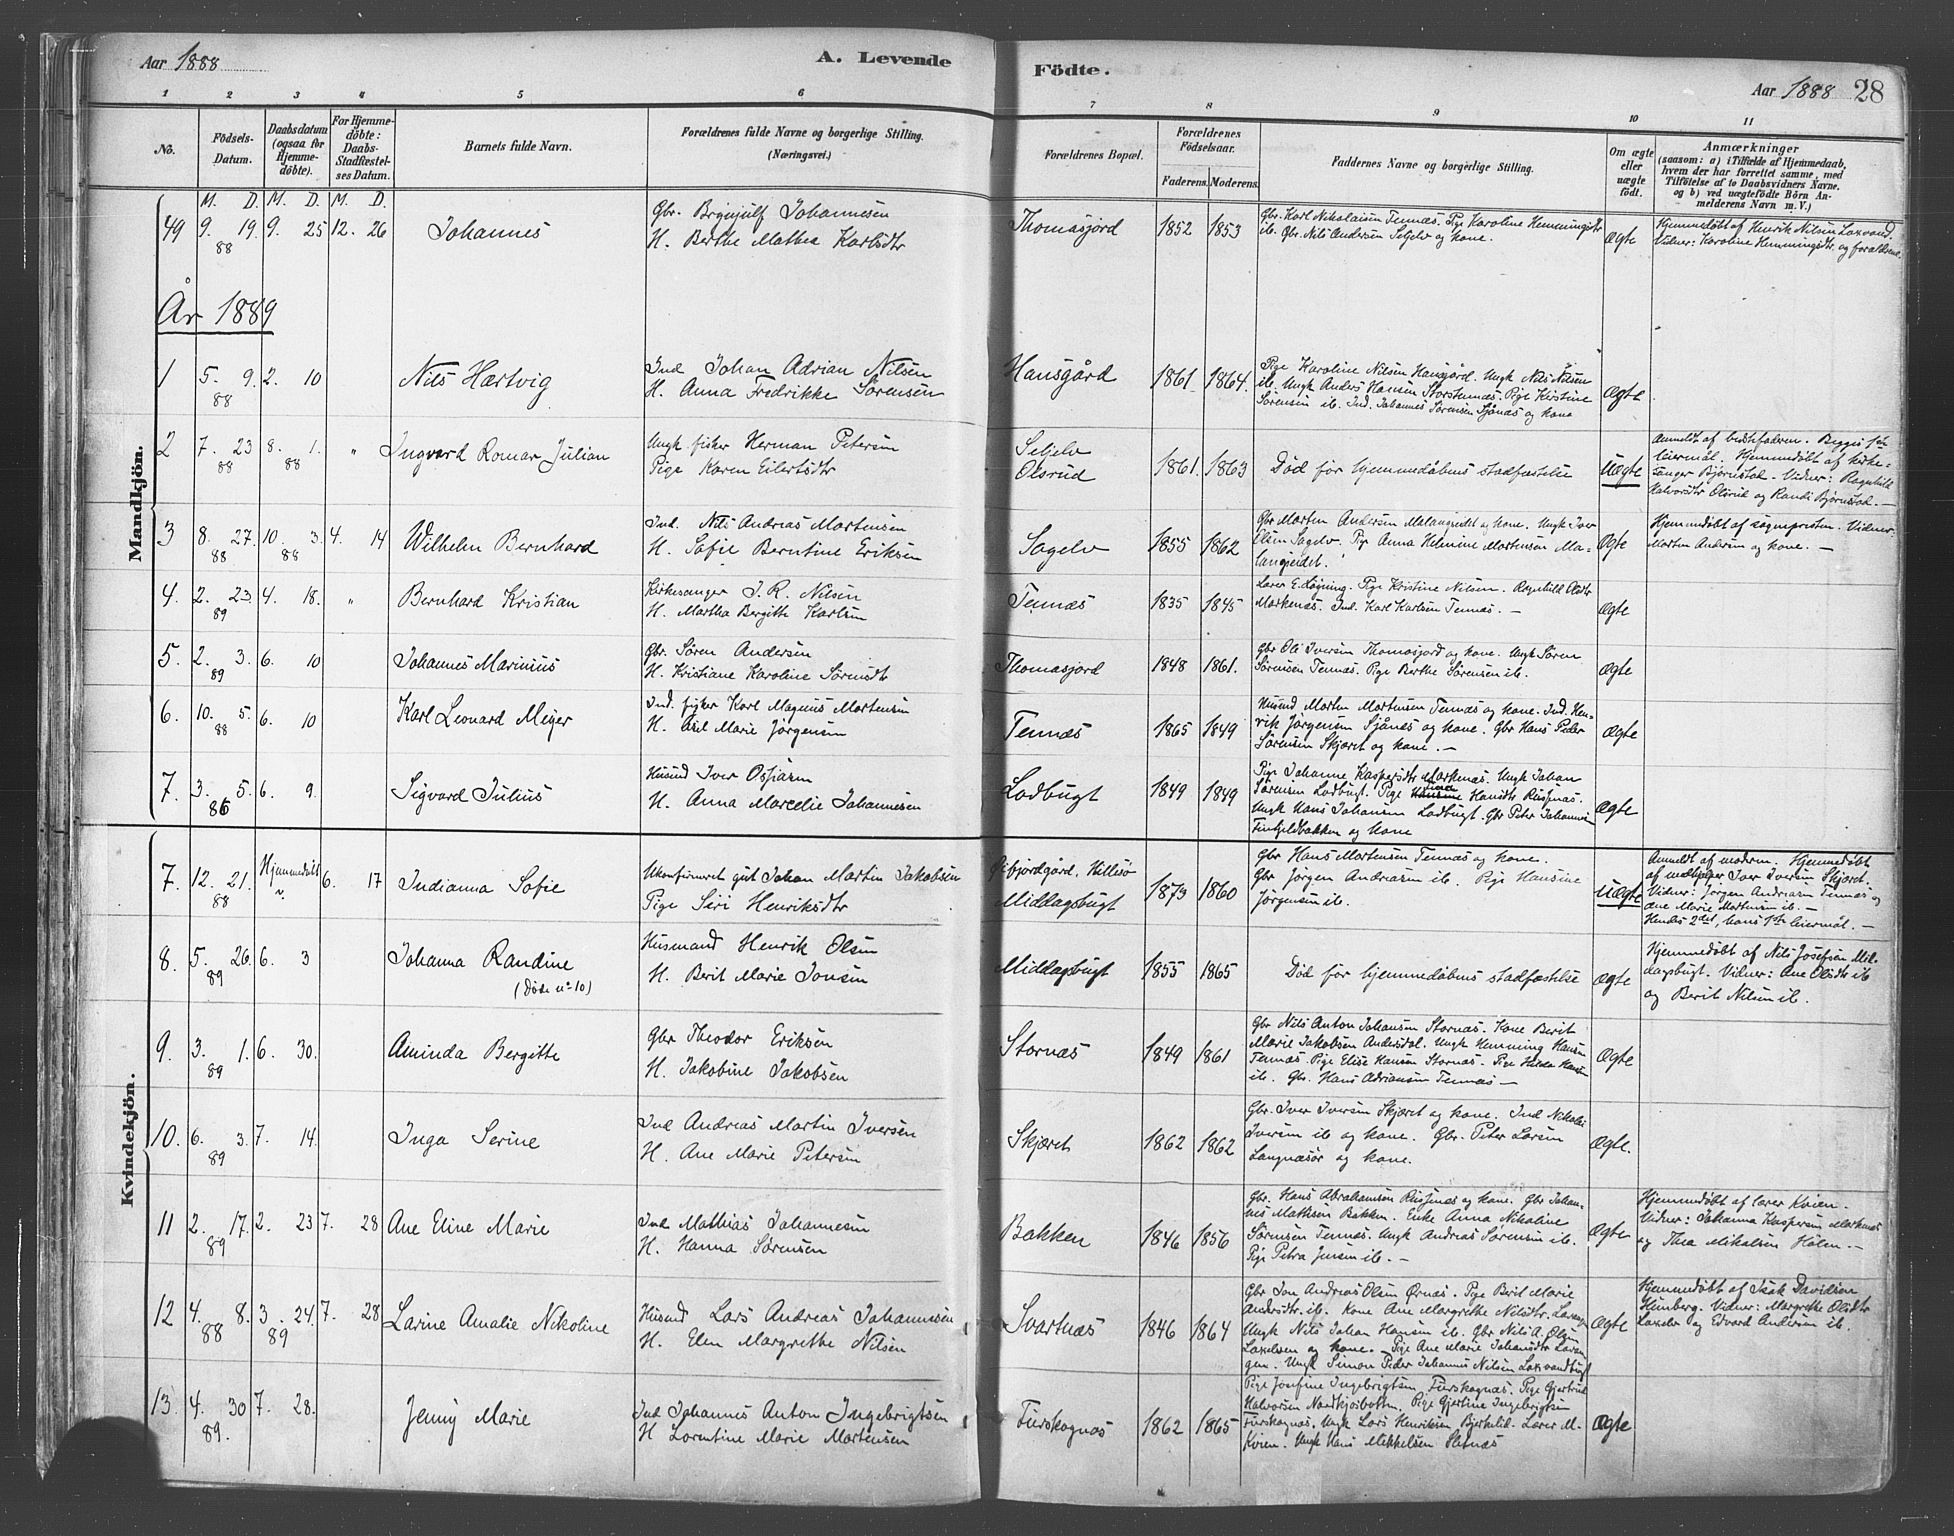 Aar 1888
A. Levende
Födte.
Aar 1888 28
1 2 3 4 5 6 7 8 9 10 11
No.
Födsels-
Datum.
Daabsdatum
(ogsaa for
Hjemme-
döbte).
For Hjemme-
döbte:
Daabs-
Stadfæstel-
ses Datum.
Barnets fulde Navn.
Forældrenes fulde Navne og borgerlige Stilling.
(Næringsvei.)
Forældrenes Bopæl.
Forældrenes
Födselsaar.
Faderens. Moderens.
Faddernes Navne og borgerlige Stilling.
Om ægte
eller
uægte
födt.
Anmærkninger
(saasom: a) i Tilfælde af Hjemmedaab,
hvem der har forrettet samme, med
Tilföielse af to Daabsvidners Navne.
og b) ved uægtefödte Börn An-
melderens Navn m. V.)
M. D. M. D. M. D.
Mandkjön.
49 9. 19. 9. 25 12. 26
88
Johannes
Gbr. Brynjulf Johannesen
H. Berthe Mathea Karlsdtr
Thomasjord
1852 1853
Gbr. Karl Nikolaisen Tennæs. Pige Karoline Hemmingsdtr
ib. Gbr. Nils Andersen Seljelv og kone.
Ægte
Hjemmedøbt af Henrik Nilsen Laxvand
Vidner: Karoline Hemmingsdtr. og forældrene.
År 1889
1 5. 9. 2. 10
88
Nils Hartvig
Ind Johan Adrian Nilsen
H. Anna Fredrikke Sørensen
Hansgård
1861 1864.
Pige Karoline Nilsen Hansjord. Ungk Nils Nilsen
ib. Ungk Anders Hansen Storstennæs. Pige Kirstine
Sørensen ib. Ind. Johannes Sørensen Sjånæs og kone
Ægte
2 7. 23 8. 1. "
88 88
Ingvard Romar Julian
Ungk. fisker Herman Petersen
Pige Karen Eilertsdtr
Seljelv
Olsrud
1861. 1863
Død før hjemmedøbens stadfæstelse
Uægte
Anmeldt af bedstefaderen. Begges 1ste
leiermål. Hjemmedøbt af kirke-
sanger Bjørnstad. Vidner: Ragnhild
Halvorsdtr Olsrud og Randi Bjørnstad. —
3 8. 27. 10. 3. 4. 14
88 88
Wilhelm Bernhard
Ind. Nils Andreas Mortensen
H. Sofie Berntine Eriksen
Sagelv
1855 1862
Gbr Morten Andersen Malangseidet og kone. Ungk Iver
Olsen Sagelv. Pige Anna Helmine Mortensen Ma-
langseidet.
Ægte
Hjemmedøbt af sognepresten. Vidner:
Morten Andersen og kone. —
4. 2. 23. 4. 18. "
89
Bernhard Kristian
Kirkesanger J. R. Nilsen
H. Martha Bergitte Karlsen
Tennæs
1835 1845
Lærer E. Løgning. Pige Kristine Nilsen. Ragnhild Olsdtr
Markenæs. Ind. Karl Karlsen Tennæs. —
Ægte
5. 2. 3. 6. 10
89
Johannes Marinius
Gbr. Søren Andersen
H. Kristiane Karoline Sørensdtr
Thomasjord
1848 1861.
Gbr Ole Iversen Thomasjord og kone. Ungk Søren
Sørensen Tennæs. Pige Berthe Sørensen ib.
Ægte
6. 10. 5. 6. 10
88
Karl Leonard Meyer
Ind. fisker Karl Magnus Mortensen
H. Marie Jørgensen
Tennæs
1865 1849
Husmd Morten Mortensen Tennæs og kone. Ind. Hen-
rik Jørgensen Sjånæs og kone. Gbr Hans Peder
Sørensen Skjæret og kone. —
Ægte
7. 3. 5. 6. 9.
86
Sigvard Julius
Husmd Iver Ossiasen
H. Anna Marcelie Johannesen
Lodbugt
1849 1849
Pige Johanne Kaspersdtr Markenæs. Ungk Johan
Sørensen Lodbugt. Pige Hansdtr Russenæs.
Ungk Hans Johansen Lodbugt. Gbr Peter Johannesen
Finfjeldbakken og kone
Ægte
Kvindekjön.
7. 12. 21. Hjemmedøbt 6. 17
88
Indianna Sofie
Ukonfirmeret gut Johan Martin Jakobsen
Pige Siri Henriksdtr
Hillesø
Middagsbugt
1873 1860
Gbr Hans Mortensen Tennæs og kone.
Gbr Jørgen Andreasen ib. Pige Hansine
Jørgensen ib.
Uægte
Anmeldt af moderen. Hjemmedøbt
af Iver Iversen Skjæret.
Vidner: Jørgen Andreasen Tennæs og
Ane Marie Mortensen ib. —
Hendes 2det, hans 1ste leiermål. —
8. 5. 26. 6. 3
89
Johanna Randine
(Døde no 10)
Husmand Henrik Olsen
H. Berit Marie Jonsen
Middagsbugt
1855 1865
Død før hjemmedøbens stadfæstelse
Ægte
Hjemmedøbt af Nils Josefsen Mid-
dagsbugt. Vidner: Ane Olsdtr ib
og Berit Nilsen ib.
9. 3. 1. 6. 30.
89
Aminda Bergitte
Gbr Theodor Eriksen
H. Jakobine Jakobsen
Stornæs
1849 1861
Gbr Nils Anton Johansen Stornæs. Kone Berit
Marie Jakobsen Andersdal. Ungk Hemming Hansen
Tennæs. Pige Elise Hansen Stornæs. Pige Hilda Hansen
ib. Gbr. Hans Adriansen Tennæs —
Ægte
10. 6. 3. 7. 14.
89
Inga Serine
Ind Andreas Martin Iversen
H. Ane Marie Petersen
Skjæret
1862 1862
Gbr. Iver Iversen Skjæret og kone. Ind Nikolai
Iversen ib og kone. Gbr. Peter Larsen
Langnæsør og kone.
Ægte.
11 2. 17. 2. 23 7. 28
89
Ane Eline Marie
Ind Mathias Johannesen
H. Hanna Sørensen
Bakken
1846 1856
Gbr. Hans Abrahamsen Russenæs og kone. Gbr Johan-
nes Mathisen Bakken. Enke Anna Nikoline
Sørensen Tennæs. Ungk Andreas Sørensen ib.
Pige Petra Jensen ib. —
Ægte
Hjemmedøbt af lærer Kvien.
Vidner: Johanna Kaspersen Markenæs
og Thea Mikalsen Holm. —
12 4. 8. 3. 24. 7. 28
88 89
Larine Amalie Nikoline
Husmd Lars Andreas Johannesen
H. Elen Margrethe Nilsen
Svartnæs
1846 1864
Gbr Jon Andreas Olsen Ørnæs. Pige Berit Marie
Andersdtr. ib. Kone Ane Margrethe Nilsdtr.
Ungk Nils Johan Hansen ib. Gbr Nils A. Olsen
Laxelven og kone. Pige Ane Marie Johansdtr Lavan-
gen. Ungk Simon Peder Johannes Nilsen Laxvandbugt
Ægte
Hjemmedøbt af Isak Davidsen
Himberg. Vidner: Margrethe Olsdtr
Laxelv og Edvard Andersen ib.
13 4. 30 7. 28.
89.
Jenny Marie
Ind Johannes Anton Ingebrigtsen
H Lorentine Marie Mortensen
Furskognæs
1862 1865
Pige Josefine Ingebrigtsen Furskognæs. Pige Gjertrud
Halvorsen Nordkjosbotten. Pige Gjertine Ingebrigtsen
Furskognæs. Ungk Lars Henriksen Bjerkelid. Lærer M.
Kvien. Ungk Hans Mikkelsen Sletnæs
Ægte